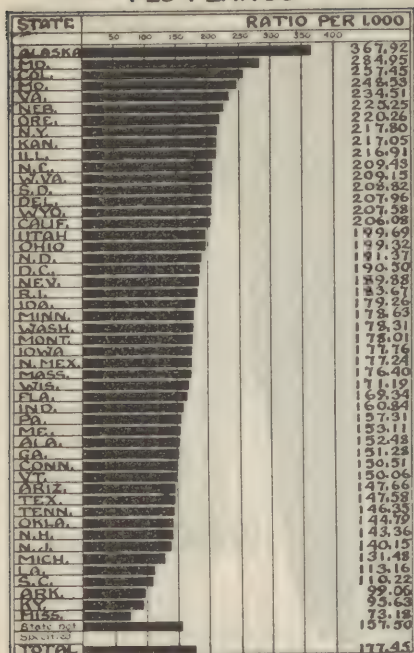 STATE RATIO PER 1,000
50 100 150 200 250 300 350 400
ALASKA 367.92
MD. 284.95
COL. 257.45
MO. 248.53
VA. 234.51
NEB. 225.25
ORE. 220.26
N.Y. 217.80
KAN. 217.05
ILL. 216.91
N.C. 209.43
W.VA. 209.15
S.D. 208.82
DEL. 207.96
WYO. 207.58
CALIF. 206.08
UTAH 199.69
OHIO 199.32
N.D. 191.37
D.C. 190.50
NEV. 189.88
R.I. 183.67
IDA. 179.26
MINN. 178.63
WASH. 178.31
MONT. 178.01
IOWA 177.76
N.MEX. 177.24
MASS. 176.40
WIS. 171.19
FLA. 169.34
IND. 160.84
PA. 157.31
ME. 153.11
ALA. 152.48
GA. 151.28
CONN. 150.51
VT. 150.06
ARIZ. 147.66
TEX. 147.58
TENN. 146.35
OKLA. 144.79
N.H. 143.36
N.J. 140.15
MICH. 131.48
LA. 113.16
S.C. 110.22
ARK. 99.06
KY. 95.63
MISS. 73.18
State not 157.50
Specified
TOTAL 177.45